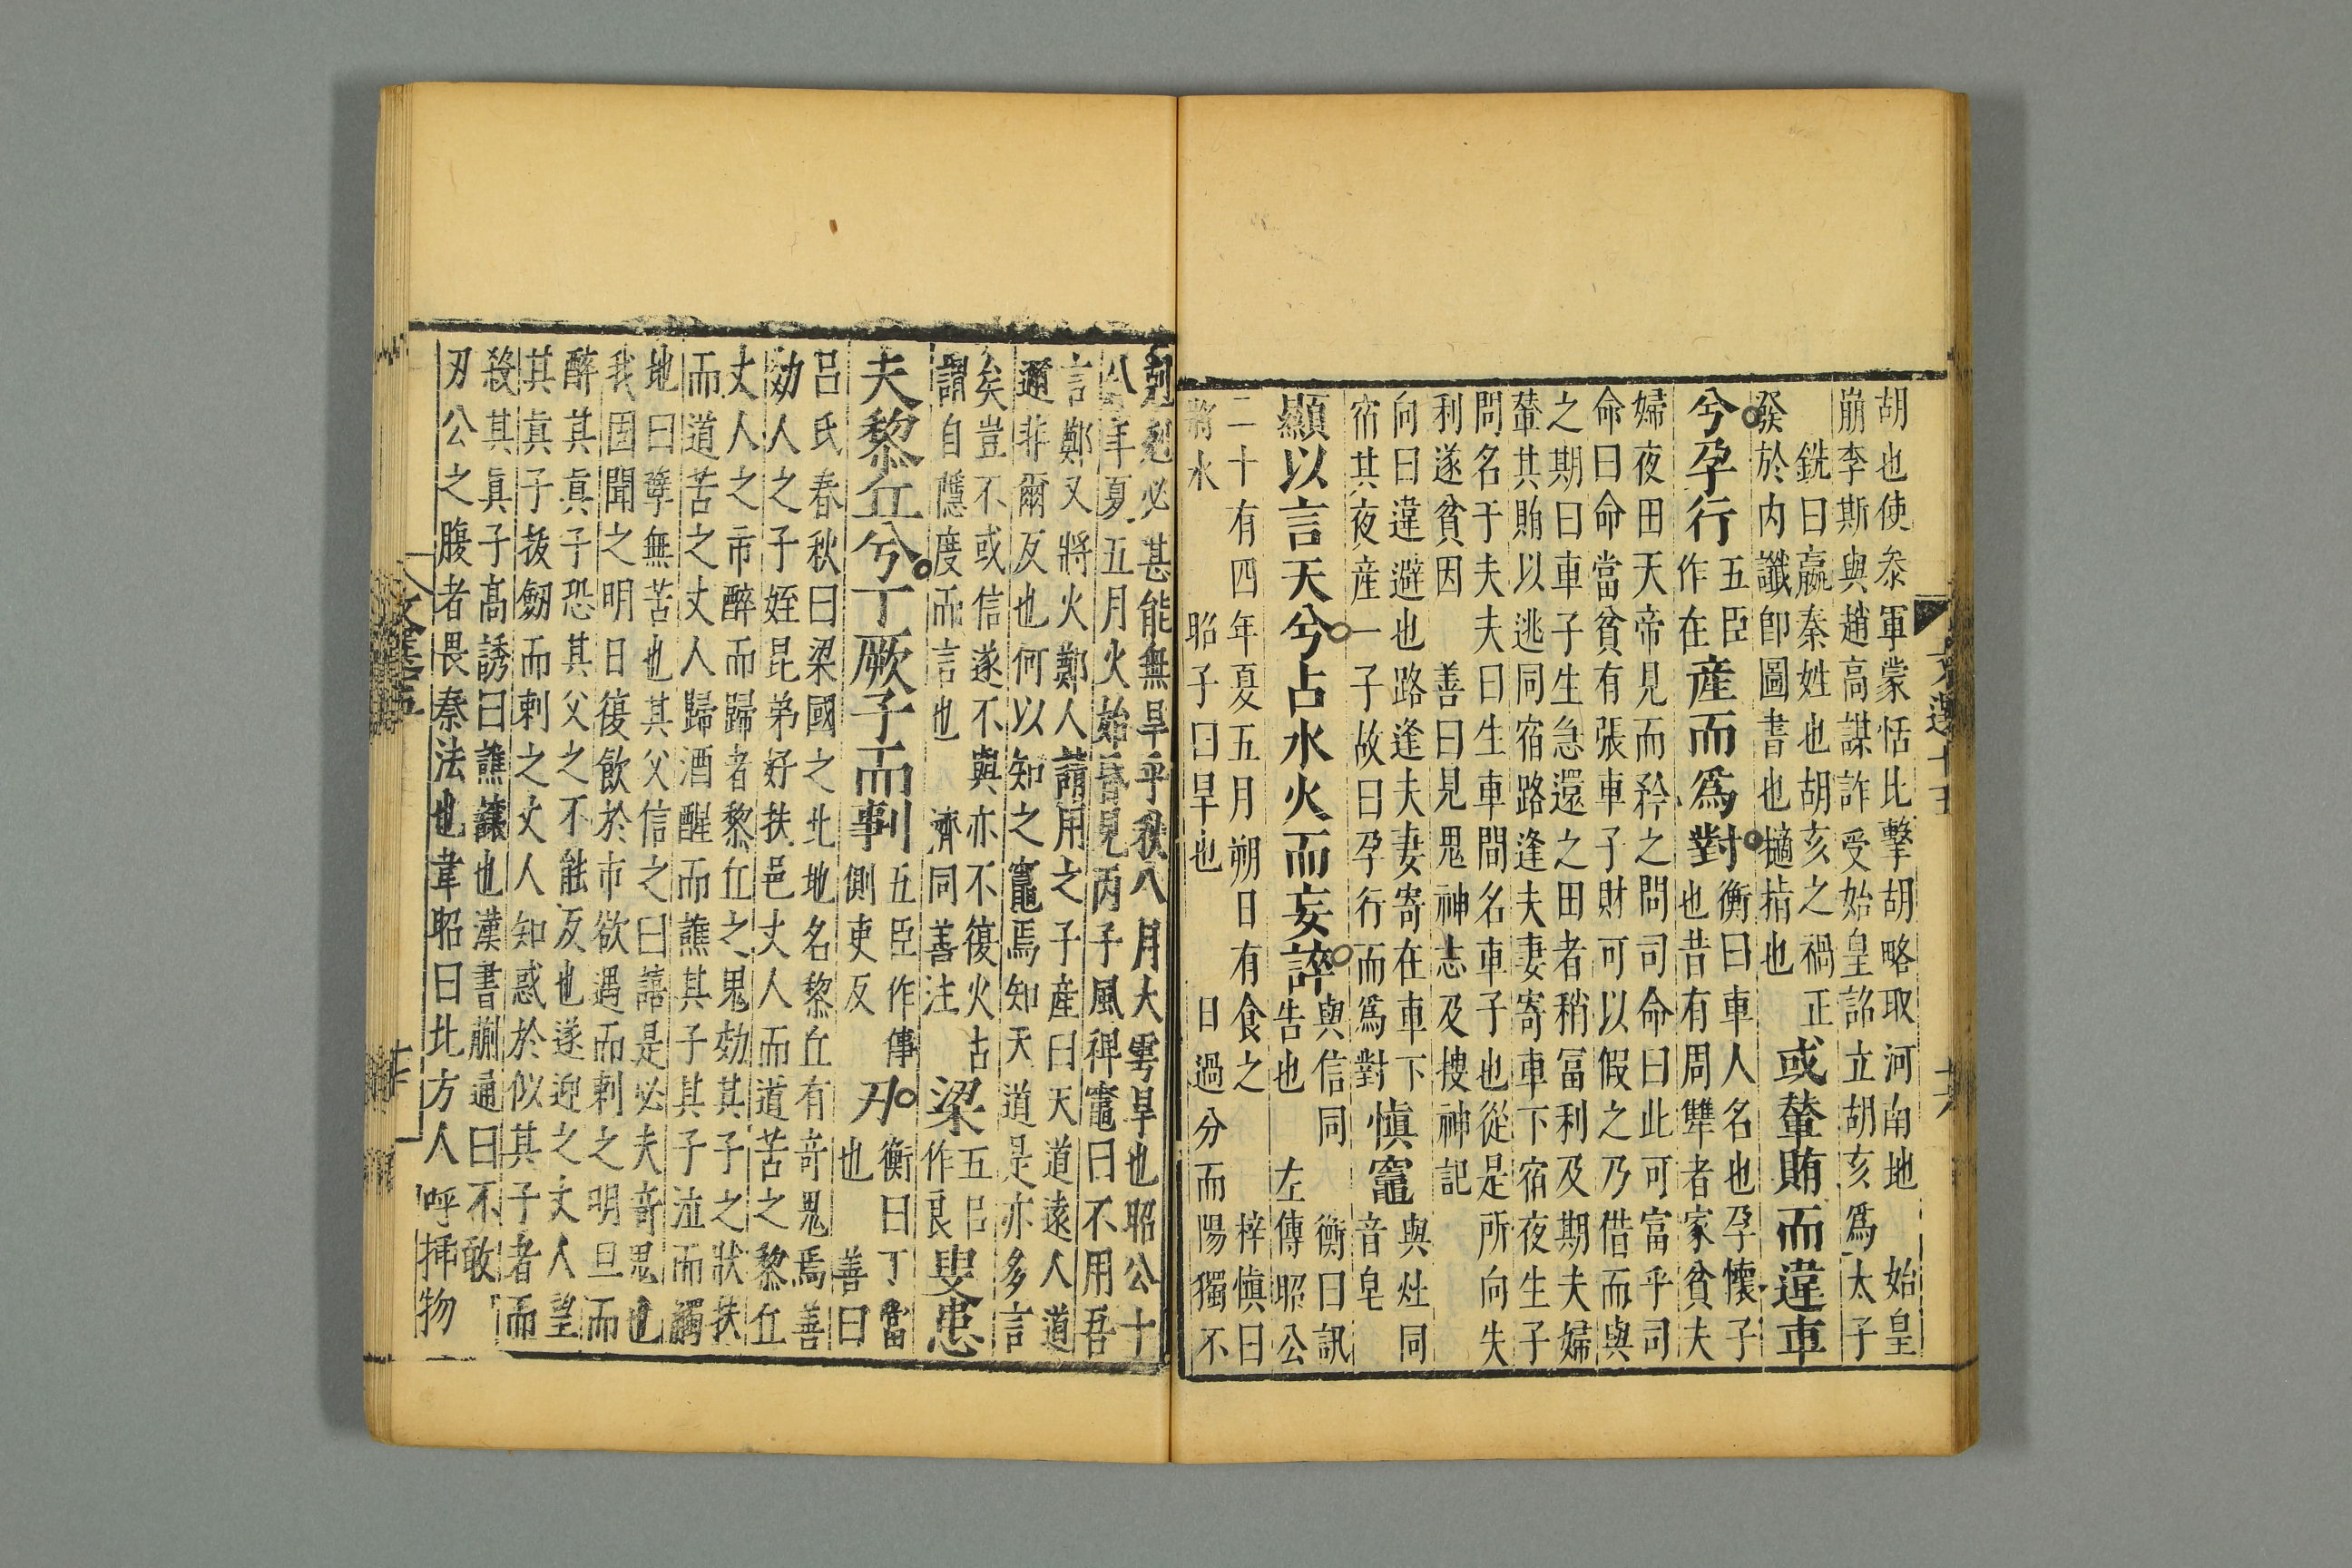 胡也使泰軍蒙恬比擊胡略取河南地　始皇
崩李斯與趙高謀詐受始皇詔立胡亥爲太子
銑曰嬴秦姓也胡亥之禍正
發於内讖卽圖書也擿掊也
或輦賄而違車
兮孕行
五臣
作在
産而爲對
衡曰車人名也孕懷子
也昔有周犨者家貧夫
婦夜田天帝見而矜之問司命曰此可富乎司
命曰命當貧有張車子財可以假之乃借而與
之期曰車子生急還之田者稍冨利及期夫婦
輦其賄以逃同宿路逢夫妻寄車下宿夜生子
問名于夫夫曰生車間名車子也從是所向失
利遂貧因　善曰見鬼神志及搜神記
向曰違避也路逢夫妻寄在車下
宿其夜産一子故曰孕行而爲對
愼竈
與灶同
音皂
顯以言天兮占水火而妄誶
衡曰訊
與信同
告也　左傳昭公
二十有四年夏五月朔日有食之　梓愼曰
將水　昭子曰旱也　日過分而陽獨不
剋剋必甚能無旱乎秋八月大雩旱也昭公十
八年夏五月火始昏見丙子風稗竈曰不用吾
言鄭又將火鄭人請用之子産曰天道遠人道
邇非爾及也何以知之竈焉知天道是亦多言
矣豈不或信遂不與亦不復火古
謂自隱度而言也　濟同善注
梁
五臣
作良
叟患
夫黎丘兮丁厥子而剚
五臣作傳
側吏反
刃
衡曰丁當
也　善曰
呂氏春秋曰梁國之北地名黎丘有奇鬼焉善
効人之子姪昆弟好扶邑丈人而道苦之黎丘
丈人之市醉而歸者黎丘之鬼効其子之狀扶
而道苦之丈人歸酒醒而譙其子其子泣而觸
地曰孽無苦也其父信之曰譆是必夫奇鬼也
我固聞之明日復飲於市欲遇而刺之明旦而
醉其真子恐其父之不能反也遂迎之丈人望
其真子拔劒而刺之丈人知惑於似其子者而
殺其真子高誘曰譙讓也漢書蒯通曰不敢
刃公之腹者畏秦法也韋昭曰北方人呼揷物